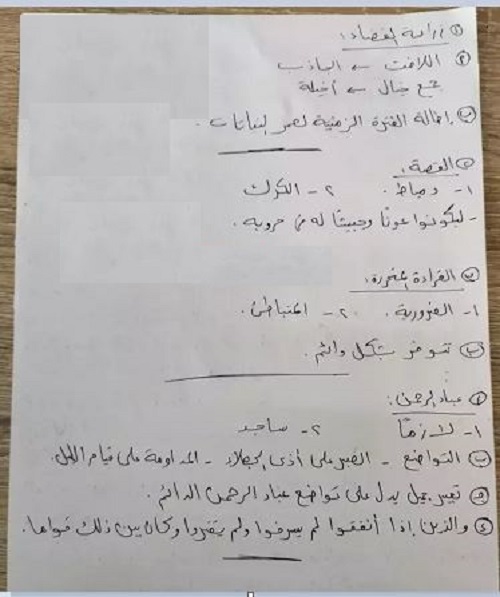 ① زراعة الفضاء:
② اللافت ← الجاذب
جمع خيال ← أخيلة
إطالة الفترة الزمنية لعمر النباتات.
القصة:
١- دمياط. ٢- الكرك
- ليكونوا عونًا وجيشًا له في حروبه.
القراءة المتحررة:
١- الضرورية. ٢- المتباطئ.
تتوفر بشكل دائم.
عباد الرحمن:
١- لازمًا ٢- ساجد
التواضع - الصبر على أذى الجهلاء - المداومة على قيام الليل
تعبير جميل يدل على تواضع عباد الرحمن الدائم.
والذين إذا أنفقوا لم يسرفوا ولم يقتروا وكان بين ذلك قواما.